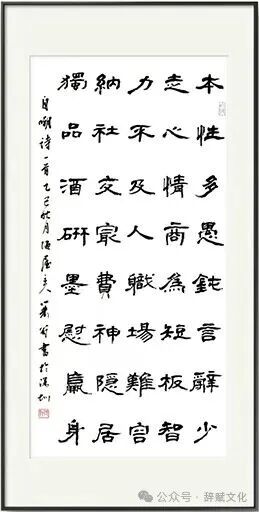 本性多愚鈍言辭少
走心情商為短板智
力不及人職場難容
納社交最費神隱居
獨品酒研墨慰羸身
自嘲詩一首乙巳秋月書於深圳
公众号·辞赋文化